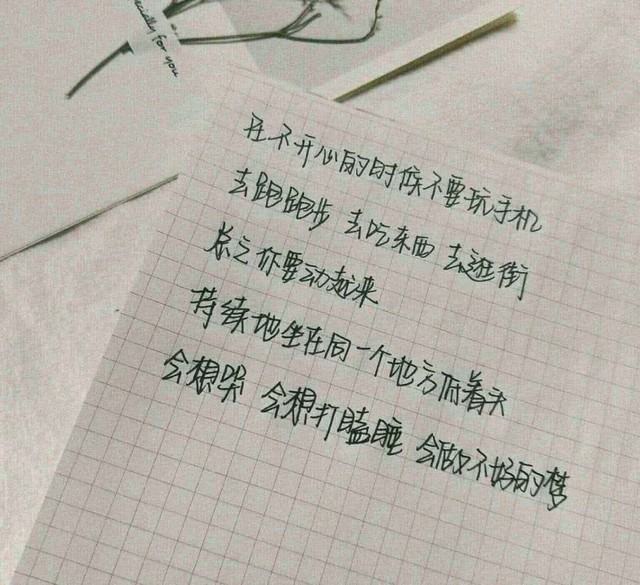 ecially for you
在不开心的时候不要玩手机
去跑跑步 去吃东西 去逛街
总之你要动起来
持续地坐在同一个地方低着头
会想哭 会想打瞌睡 会做不好的梦